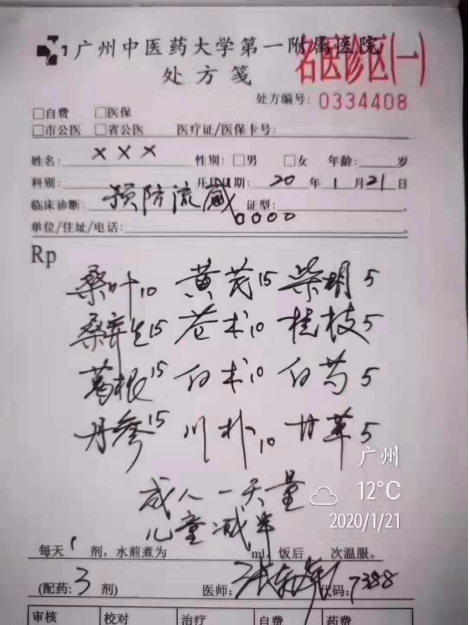 广州中医药大学第一附属医院
名医诊区(一)
处方笺
处方编号: 0334408
□自费 □医保
□市公医 □省公医 医疗证/医保卡号:
姓名: ××× 性别: □男 □女 年龄: 岁
科别: 开具日期: 20 年 1 月 21 日
临床诊断: 预防流感 证型:
单位/住址/电话:
Rp
桑叶10 黄芪15 柴胡5
桑寄生15 苍术10 桂枝5
葛根15 白术10 白芍5
丹参15 川朴10 甘草5
成人一天量
儿童减半
广州
12°C
2020/1/21
每天1剂,水煎煮为 ml,饭后 次温服。
(配药: 3 剂) 医师: 代码: 7388
审核 校对 治疗 自费 药费